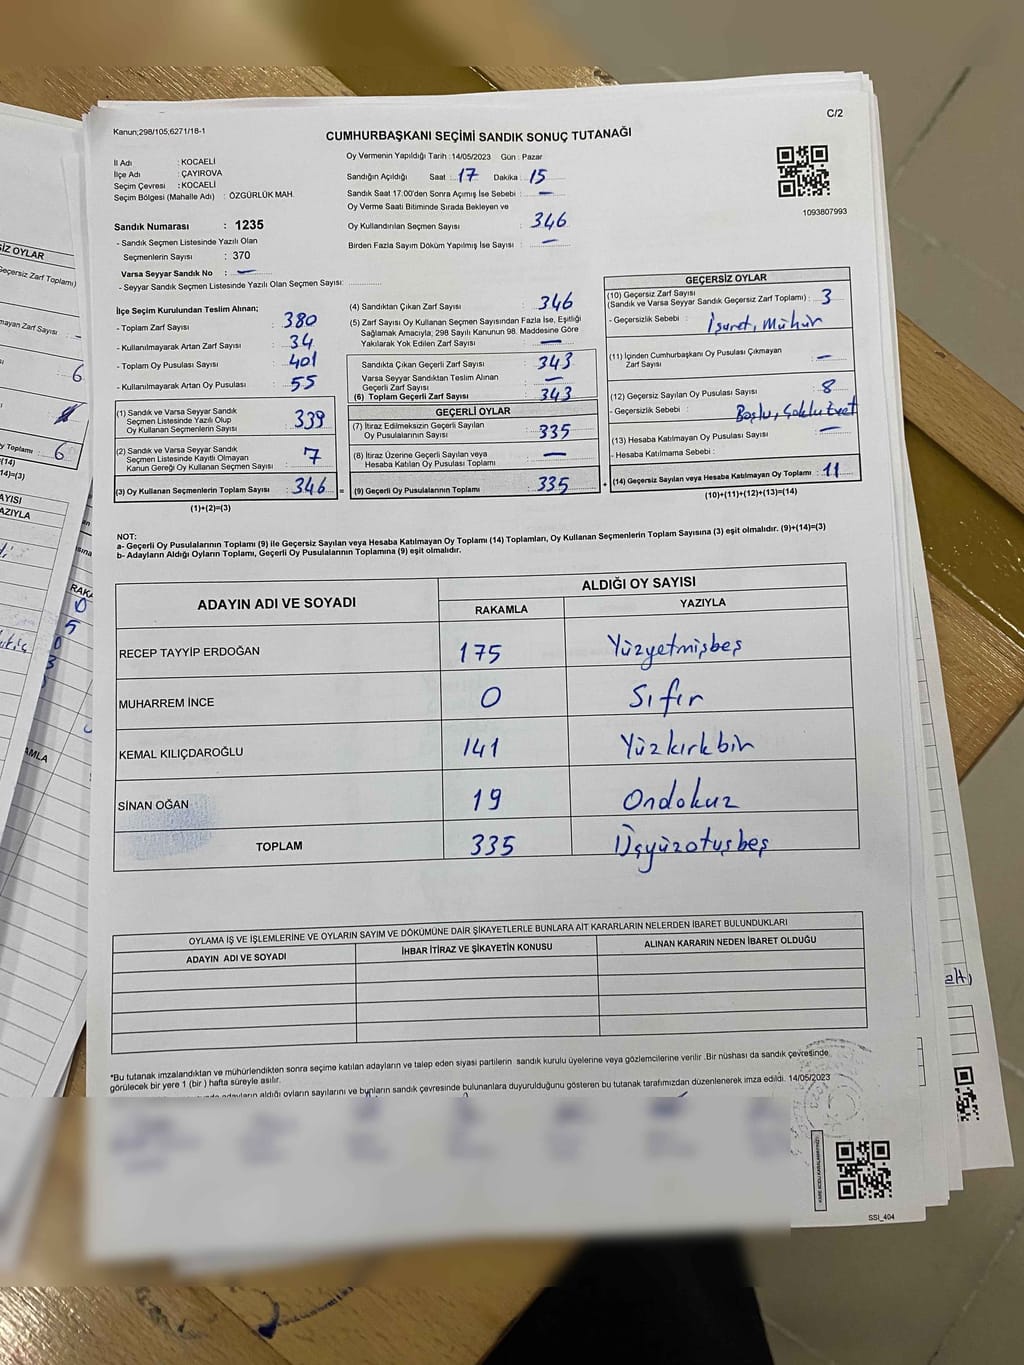 C/2
Kanun;298/105,6271/18-1
CUMHURBAŞKANI SEÇİMİ SANDIK SONUÇ TUTANAĞI
İl Adı : KOCAELİ
İlçe Adı : ÇAYIROVA
Seçim Çevresi : KOCAELİ
Seçim Bölgesi (Mahalle Adı) : ÖZGÜRLÜK MAH.
Oy Vermenin Yapıldığı Tarih : 14/05/2023 Gün : Pazar
Sandığın Açıldığı Saat : 17 Dakika : 15
Sandık Saat 17.00'den Sonra Açımış İse Sebebi : —
Oy Verme Saati Bitiminde Sırada Bekleyen ve
Oy Kullandırılan Seçmen Sayısı : 346
Birden Fazla Sayım Döküm Yapılmış İse Sayısı : —
1093807993
Sandık Numarası : 1235
- Sandık Seçmen Listesinde Yazılı Olan
Seçmenlerin Sayısı : 370
Varsa Seyyar Sandık No : —
- Seyyar Sandık Seçmen Listesinde Yazılı Olan Seçmen Sayısı:
İlçe Seçim Kurulundan Teslim Alınan;
- Toplam Zarf Sayısı : 380
- Kullanılmayarak Artan Zarf Sayısı : 34
- Toplam Oy Pusulası Sayısı : 401
- Kullanılmayarak Artan Oy Pusulası : 55
(1) Sandık ve Varsa Seyyar Sandık
Seçmen Listesinde Yazılı Olup
Oy Kullanan Seçmenlerin Sayısı : 339
(2) Sandık ve Varsa Seyyar Sandık
Seçmen Listesinde Kayıtlı Olmayan
Kanun Gereği Oy Kullanan Seçmen Sayısı : 7
(3) Oy Kullanan Seçmenlerin Toplam Sayısı : 346 =
(1)+(2)=(3)
(4) Sandıktan Çıkan Zarf Sayısı : 346
(5) Zarf Sayısı Oy Kullanan Seçmen Sayısından Fazla İse, Eşitliği
Sağlamak Amacıyla; 298 Sayılı Kanunun 98. Maddesine Göre
Yakılarak Yok Edilen Zarf Sayısı : —
Sandıkta Çıkan Geçerli Zarf Sayısı : 343
Varsa Seyyar Sandıktan Teslim Alınan
Geçerli Zarf Sayısı : —
(6) Toplam Geçerli Zarf Sayısı : 343
GEÇERLİ OYLAR
(7) İtiraz Edilmeksizin Geçerli Sayılan
Oy Pusulalarının Sayısı : 335
(8) İtiraz Üzerine Geçerli Sayılan veya
Hesaba Katılan Oy Pusulası Toplamı : —
(9) Geçerli Oy Pusulalarının Toplamı : 335 +
GEÇERSİZ OYLAR
(10) Geçersiz Zarf Sayısı
(Sandık ve Varsa Seyyar Sandık Geçersiz Zarf Toplamı) : 3
- Geçersizlik Sebebi : İşaret, Mühür
(11) İçinden Cumhurbaşkanı Oy Pusulası Çıkmayan
Zarf Sayısı : —
(12) Geçersiz Sayılan Oy Pusulası Sayısı : 8
- Geçersizlik Sebebi : Boşlu, Çoklu Evet
(13) Hesaba Katılmayan Oy Pusulası Sayısı : —
- Hesaba Katılmama Sebebi :
(14) Geçersiz Sayılan veya Hesaba Katılmayan Oy Toplamı : 11
(10)+(11)+(12)+(13)=(14)
NOT:
a- Geçerli Oy Pusulalarının Toplamı (9) ile Geçersiz Sayılan veya Hesaba Katılmayan Oy Toplamı (14) Toplamları, Oy Kullanan Seçmenlerin Toplam Sayısına (3) eşit olmalıdır. (9)+(14)=(3)
b- Adayların Aldığı Oyların Toplamı, Geçerli Oy Pusulalarının Toplamına (9) eşit olmalıdır.
ADAYIN ADI VE SOYADI
ALDIĞI OY SAYISI
RAKAMLA YAZIYLA
RECEP TAYYİP ERDOĞAN 175 Yüzyetmişbeş
MUHARREM İNCE 0 Sıfır
KEMAL KILIÇDAROĞLU 141 Yüzkırkbir
SİNAN OĞAN 19 Ondokuz
TOPLAM 335 Üçyüzotuzbeş
OYLAMA İŞ VE İŞLEMLERİNE VE OYLARIN SAYIM VE DÖKÜMÜNE DAİR ŞİKAYETLERLE BUNLARA AİT KARARLARIN NELERDEN İBARET BULUNDUKLARI
ADAYIN ADI VE SOYADI İHBAR İTİRAZ VE ŞİKAYETİN KONUSU ALINAN KARARIN NEDEN İBARET OLDUĞU
*Bu tutanak imzalandıktan ve mühürlendikten sonra seçime katılan adayların ve talep eden siyasi partilerin sandık kurulu üyelerine veya gözlemcilerine verilir .Bir nüshası da sandık çevresinde
görülecek bir yere 1 (bir ) hafta süreyle asılır.
adayların aldığı oyların sayılarını ve bunların sandık çevresinde bulunanlara duyurulduğunu gösteren bu tutanak tarafımızdan düzenlenerek imza edildi. 14/05/2023
SSI_404